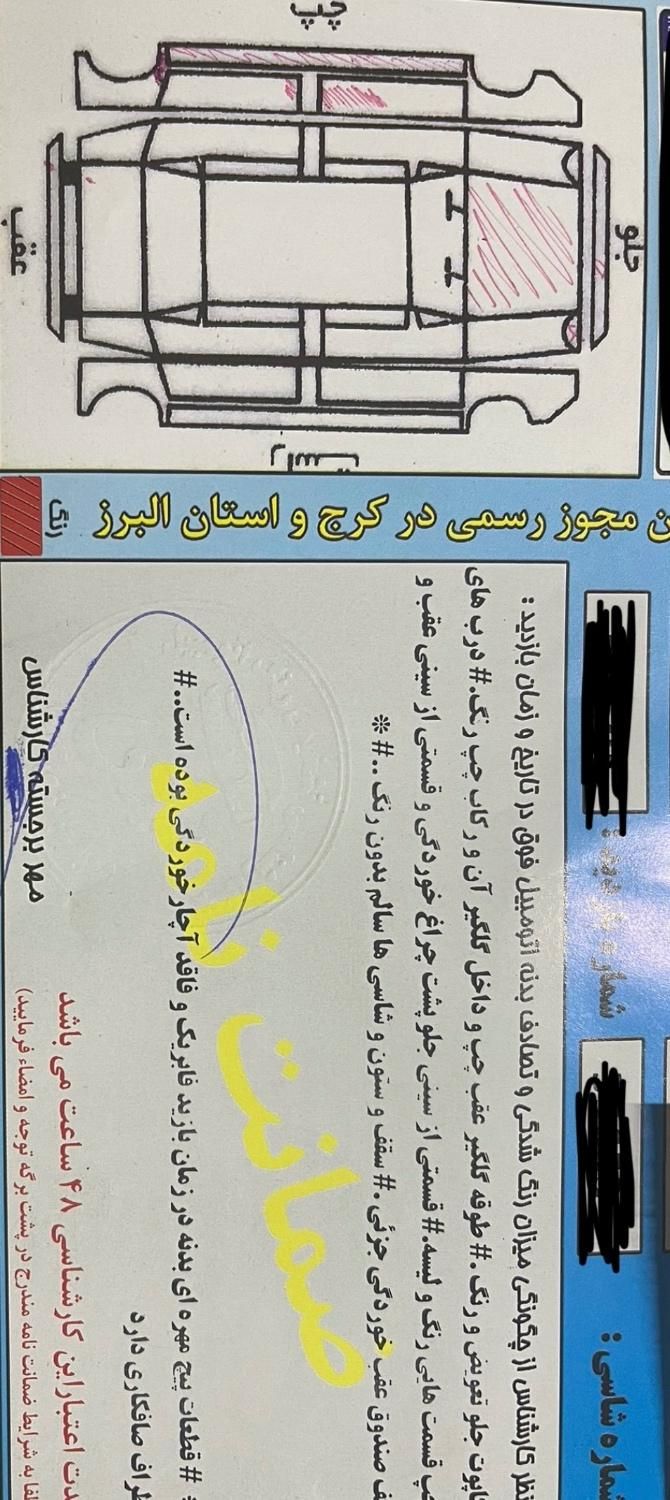 چپ
جلو
عقب
راست
ن مجوز رسمی در کرج و استان البرز
رنگ
شماره شاسی :
نظر کارشناس از چگونگی میزان رنگ شدگی و تصادف بدنه اتومبیل فوق در تاریخ و زمان بازدید :
کاپوت جلو تعویض و رنگ .# طوقه گلگیر عقب چپ و داخل گلگیر آن و رکاب چپ رنگ.# درب های
چپ قسمت هایی رنگ و لیسه.# قسمتی از سینی جلو پشت چراغ خوردگی و قسمتی از سینی عقب و
ف صندوق عقب خوردگی جزئی .# سقف و ستون و شاسی ها سالم بدون رنگ ..# *
ضمانت نامه
# قطعات پیچ مهره ای بدنه در زمان بازدید فابریک و فاقد آچار خوردگی بوده است..#
طراف صافکاری دارد
مهر برجسته کارشناس
دت اعتبار این کارشناسی ۴۸ ساعت می باشد
لفا به شرایط ضمانت نامه مندرج در پشت برگه توجه و امضاء فرمایید)